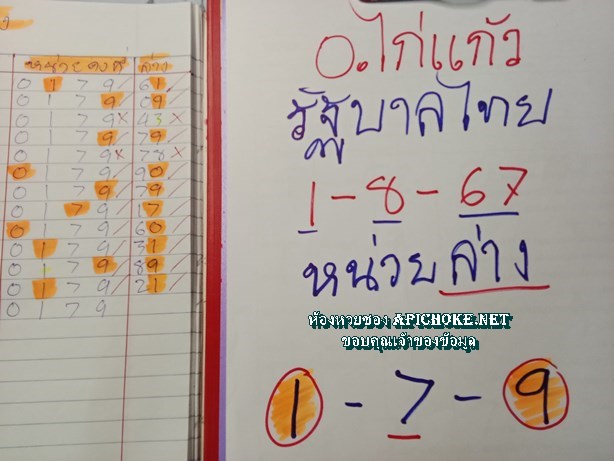 หน่วย คงที่ ล่าง
0 1 7 9 / 61 /
0 1 7 9 / 09 /
0 1 7 9 x 43 x
0 1 7 9 / 79 /
0 1 7 9 x 78 x
0 1 7 9 / 90 /
0 1 7 9 / 79 /
0 1 7 9 / 17 /
0 1 7 9 / 60 /
0 1 7 9 / 31 /
0 1 7 9 / 89 /
0 1 7 9 / 21 /
0 1 7 9
อ.ไก่แก้ว
รัฐบาลไทย
1-8-67
หน่วยล่าง
ห้องหวยซอง APICHOKE.NET
ขอบคุณเจ้าของข้อมูล
1-7-9